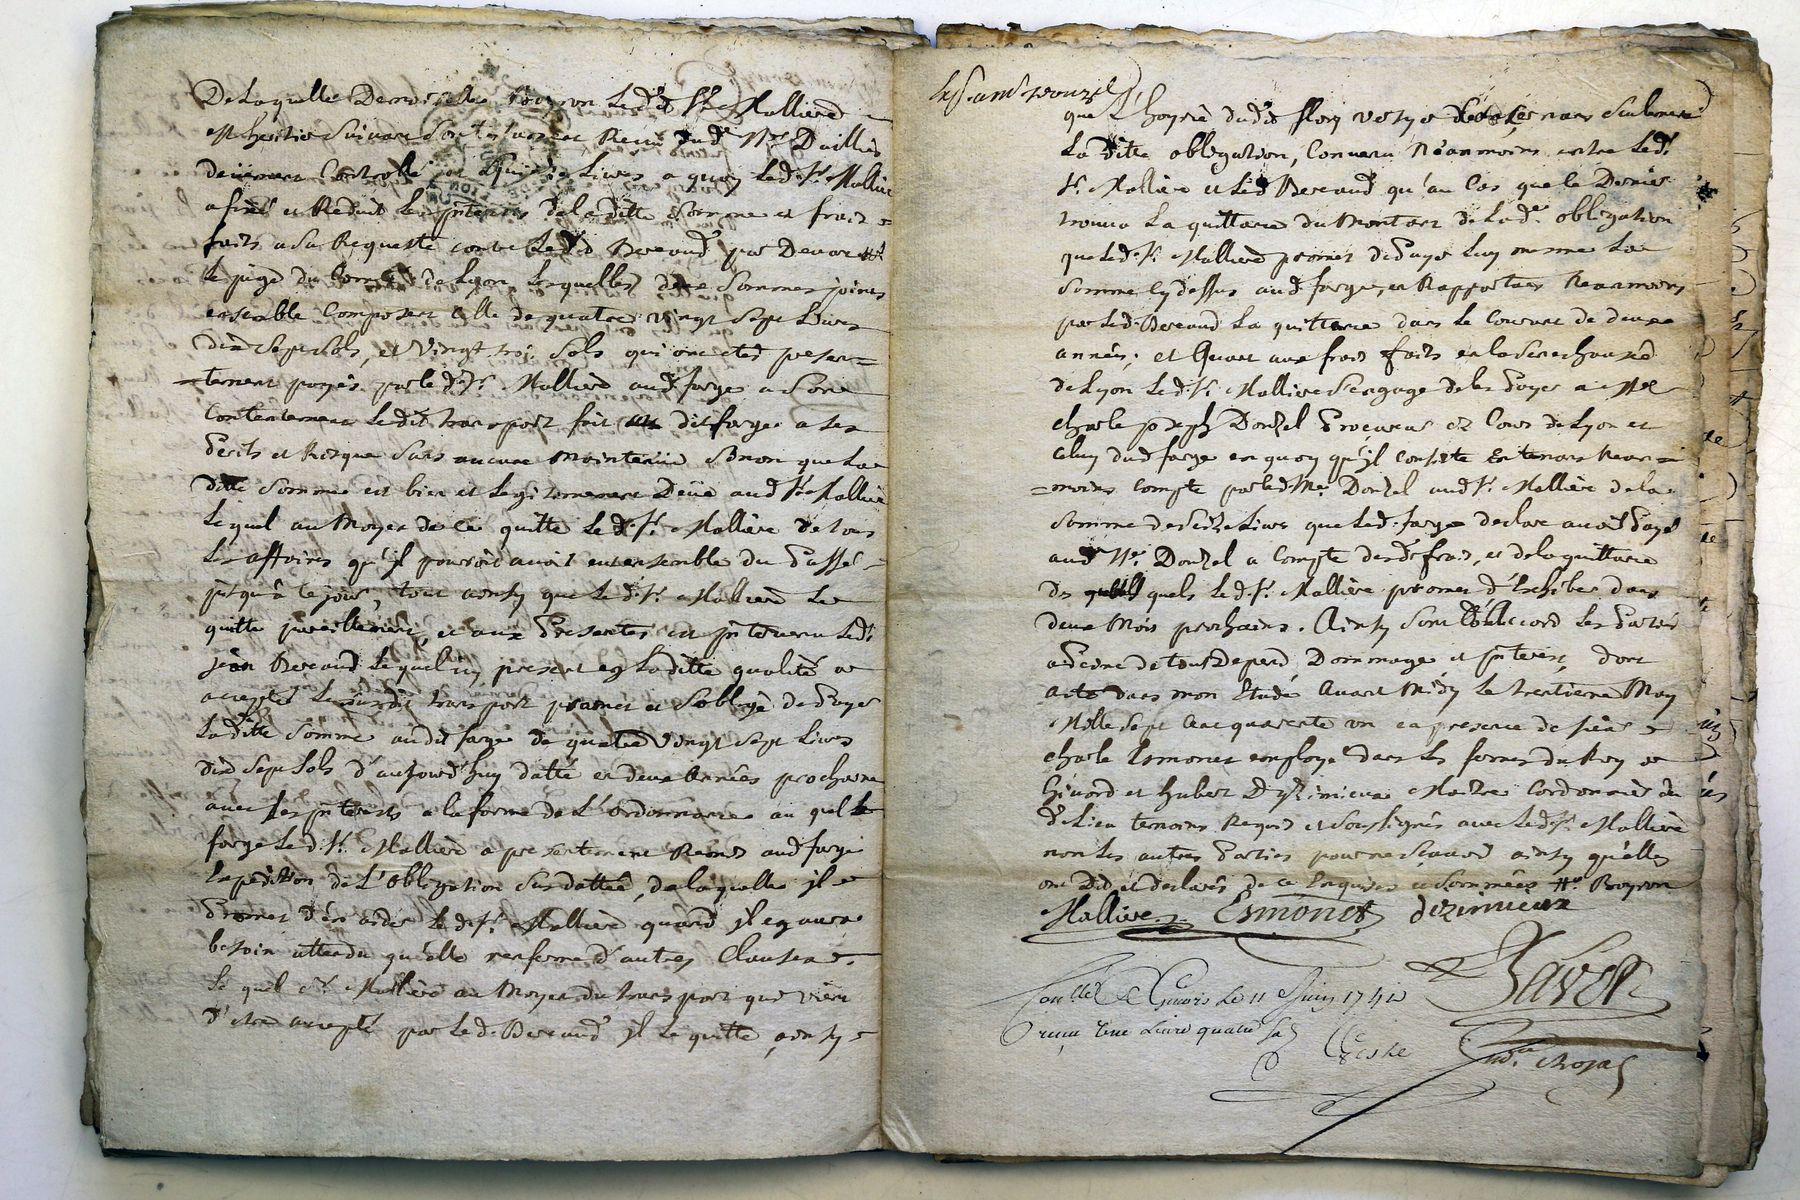 De laquelle Demoiselle Boyron led. Sr. Mallière
est heritier suivant son testament Reçu dud. Me Dailliés
deüement Controllé Livres a quoy led. Sr. Mallière
et Reduit les jnterets de la ditte somme et frais
faits a Sa Requeste contre led. Beraud par Devant Mr
le juge du Comté de Lyon lesquelles deux sommes jointes
ensemble Composent celle de quatre vingt sept Livres
dix sept sols, et vingt trois sols qui ont etés presen=
=tement payés par le d. Sr. Mallière aud. farge a Son
Contentement le dit transport fait dit farge a ses
Perils et Risque Sans aucune Maintenüe Sinon que la
ditte Somme est bien et legitimement Deüe aud. Sr. Mallière
le quel au Moyen de ce quitte le d. Sr. Mallière de tous
les affaires qu'jl pourroit avoir eu ensemble du Passé
jusqu'à ce jour, tout ainsy que le d. Sr. Mallière le
quitte pareillement, et aux Presentes est jntervenu led.
jean Beraud lequel jcy present eg la ditte qualité a
accepté le susdit transport promet et S'oblige de Payer
la ditte Somme audit farge de quatre vingt sept Livres
dix sept sols d'aujourd'huy datte en deux Années prochaine
avec les jnterests a la forme de L'ordonnance au quel
farge le d. Sr. Mallière a presentement Remis aud. farge
Expedition de L'obligation Susdattée, de laquelle jl
Promet d'en aider le d. Sr. Mallière quand jl eg aura
besoin attendu qu'elle renferme d'autres Clauses.
le quel Sr. Mallière au Moyen du transport que vient
d'etre accepté par le d. Beraud jl le quitte ainsy
que L'hoyrie dudit flory
la ditte obligation, Convenu Neanmoins entre led.
Sr. Mallière et led. Beraud qu'au Cas que le Dernier
trouva La quittance du Montant de la de. obligation
que le d. Sr. Mallière promet de Payer luy mesme la
Somme Cy dessus aud. farge, en Rapportant Neanmoins
par le d. Beraud la quittance dans le Courant de deux
années; et Quant aux frais faits en la Senechaussé
de Lyon le d. Sr. Mallière s'engage de les Payer a Me
charle joseph Donzel Procureur ez Cours de Lyon et
Celuy dud. farge en quoy qu'jl Consiste En tenant Nean=
=moins Compte par led. Me. Donzel aud. Sr. Mallière de la
Somme de Seize Livres que led. farge declare avoir Payé
aud. Me. Donzel a Compte desd. frais, et de la quittance
Des quels le d. Sr. Mallière promet d'Exhiber dans
deux Mois prochains. Ainsy Sont D'accord les Parties
a Peine de tous Depend, Dommage et jnterest, dont
acte dans mon Etude Avant Midy le trentieme May
Mille Sept Cent quarente un en presence de Sieur
charle Esmonet employé dans les fermes du Roy a
Givord et hubert Dezimieux Maitre Cordonnier du
d. Lieu temoins Requis et Soussignés avec led. Sr. Mallière
non les autres Parties pour ne Scavoir ainsy qu'elles
ont Dit et declarés de ce Enquises et Sommées Me. Boyron
Mallière. Esmonet dezimieux
Conllé A Givors le 11 Juin 1741
reçu une Livre quatre s.